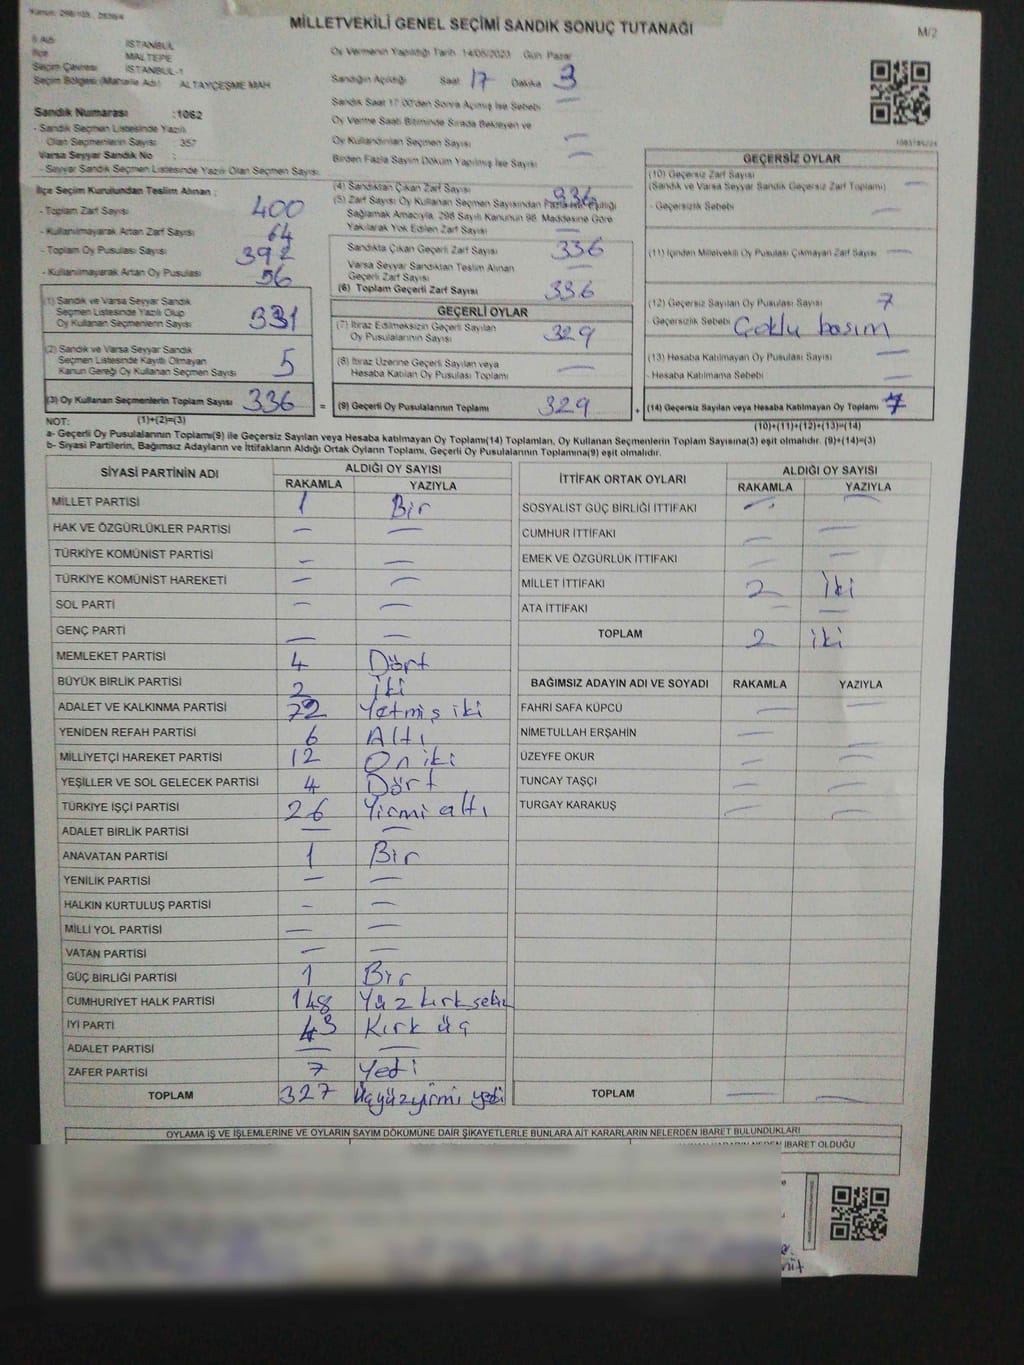 MİLLETVEKİLİ GENEL SEÇİMİ SANDIK SONUÇ TUTANAĞI
M/2
İl Adı : İSTANBUL
İlçe : MALTEPE
Seçim Çevresi : İSTANBUL-1
Seçim Bölgesi (Mahalle Adı) : ALTAYÇEŞME MAH
Oy Vermenin Yapıldığı Tarih 14/05/2023 Gün Pazar
Sandığın Açıldığı Saat 17 Dakika 3
Sandık Saat 17:00'den Sonra Açılmış İse Sebebi —
Oy Verme Saati Bitiminde Sırada Bekleyen ve
Oy Kullandırılan Seçmen Sayısı —
Birden Fazla Sayım Döküm Yapılmış İse Sayısı —
Sandık Numarası :1062
- Sandık Seçmen Listesinde Yazılı
Olan Seçmenlerin Sayısı : 357
Varsa Seyyar Sandık No :
- Seyyar Sandık Seçmen Listesinde Yazılı Olan Seçmen Sayısı:
İlçe Seçim Kurulundan Teslim Alınan ;
- Toplam Zarf Sayısı 400
- Kullanılmayarak Artan Zarf Sayısı 64
- Toplam Oy Pusulası Sayısı 392
- Kullanılmayarak Artan Oy Pusulası 56
(1) Sandık ve Varsa Seyyar Sandık
Seçmen Listesinde Yazılı Olup
Oy Kullanan Seçmenlerin Sayısı 331
(2) Sandık ve Varsa Seyyar Sandık
Seçmen Listesinde Kayıtlı Olmayan
Kanun Gereği Oy Kullanan Seçmen Sayısı 5
(3) Oy Kullanan Seçmenlerin Toplam Sayısı 336 =
(1)+(2)=(3)
(4) Sandıktan Çıkan Zarf Sayısı 336
(5) Zarf Sayısı Oy Kullanan Seçmen Sayısından Fazla ise Eşitliği
Sağlamak Amacıyla, 298 Sayılı Kanunun 98. Maddesine Göre
Yakılarak Yok Edilen Zarf Sayısı —
Sandıkta Çıkan Geçerli Zarf Sayısı 336
Varsa Seyyar Sandıktan Teslim Alınan
Geçerli Zarf Sayısı —
(6) Toplam Geçerli Zarf Sayısı 336
GEÇERLİ OYLAR
(7) İtiraz Edilmeksizin Geçerli Sayılan
Oy Pusulalarının Sayısı 329
(8) İtiraz Üzerine Geçerli Sayılan veya
Hesaba Katılan Oy Pusulası Toplamı —
(9) Geçerli Oy Pusulalarının Toplamı 329 +
GEÇERSİZ OYLAR
(10) Geçersiz Zarf Sayısı
(Sandık ve Varsa Seyyar Sandık Geçersiz Zarf Toplamı) —
- Geçersizlik Sebebi —
(11) İçinden Milletvekili Oy Pusulası Çıkmayan Zarf Sayısı —
(12) Geçersiz Sayılan Oy Pusulası Sayısı 7
- Geçersizlik Sebebi Çoklu basım
(13) Hesaba Katılmayan Oy Pusulası Sayısı —
- Hesaba Katılmama Sebebi —
(14) Geçersiz Sayılan veya Hesaba Katılmayan Oy Toplamı 7
(10)+(11)+(12)+(13)=(14)
NOT:
a- Geçerli Oy Pusulalarının Toplamı(9) ile Geçersiz Sayılan veya Hesaba katılmayan Oy Toplamı(14) Toplamları, Oy Kullanan Seçmenlerin Toplam Sayısına(3) eşit olmalıdır. (9)+(14)=(3)
b- Siyasi Partilerin, Bağımsız Adayların ve İttifakların Aldığı Ortak Oyların Toplamı, Geçerli Oy Pusulalarının Toplamına(9) eşit olmalıdır.
SİYASİ PARTİNİN ADI ALDIĞI OY SAYISI
RAKAMLA YAZIYLA
MİLLET PARTİSİ 1 Bir
HAK VE ÖZGÜRLÜKLER PARTİSİ — —
TÜRKİYE KOMÜNİST PARTİSİ — —
TÜRKİYE KOMÜNİST HAREKETİ — —
SOL PARTİ — —
GENÇ PARTİ — —
MEMLEKET PARTİSİ 4 Dört
BÜYÜK BİRLİK PARTİSİ 2 İki
ADALET VE KALKINMA PARTİSİ 72 Yetmiş iki
YENİDEN REFAH PARTİSİ 6 Altı
MİLLİYETÇİ HAREKET PARTİSİ 12 On iki
YEŞİLLER VE SOL GELECEK PARTİSİ 4 Dört
TÜRKİYE İŞÇİ PARTİSİ 26 Yirmi altı
ADALET BİRLİK PARTİSİ — —
ANAVATAN PARTİSİ 1 Bir
YENİLİK PARTİSİ — —
HALKIN KURTULUŞ PARTİSİ — —
MİLLİ YOL PARTİSİ — —
VATAN PARTİSİ — —
GÜÇ BİRLİĞİ PARTİSİ 1 Bir
CUMHURİYET HALK PARTİSİ 148 Yüz kırk sekiz
İYİ PARTİ 43 Kırk üç
ADALET PARTİSİ — —
ZAFER PARTİSİ 7 Yedi
TOPLAM 327 Üçyüzyirmi yedi
İTTİFAK ORTAK OYLARI ALDIĞI OY SAYISI
RAKAMLA YAZIYLA
SOSYALİST GÜÇ BİRLİĞİ İTTİFAKI — —
CUMHUR İTTİFAKI — —
EMEK VE ÖZGÜRLÜK İTTİFAKI — —
MİLLET İTTİFAKI 2 İki
ATA İTTİFAKI — —
TOPLAM 2 iki
BAĞIMSIZ ADAYIN ADI VE SOYADI RAKAMLA YAZIYLA
FAHRİ SAFA KÜPCÜ — —
NİMETULLAH ERŞAHİN — —
ÜZEYFE OKUR — —
TUNCAY TAŞÇI — —
TURGAY KARAKUŞ — —
TOPLAM — —
OYLAMA İŞ VE İŞLEMLERİNE VE OYLARIN SAYIM DÖKÜMÜNE DAİR ŞİKAYETLERLE BUNLARA AİT KARARLARIN NELERDEN İBARET BULUNDUKLARI
İBARET OLDUĞU